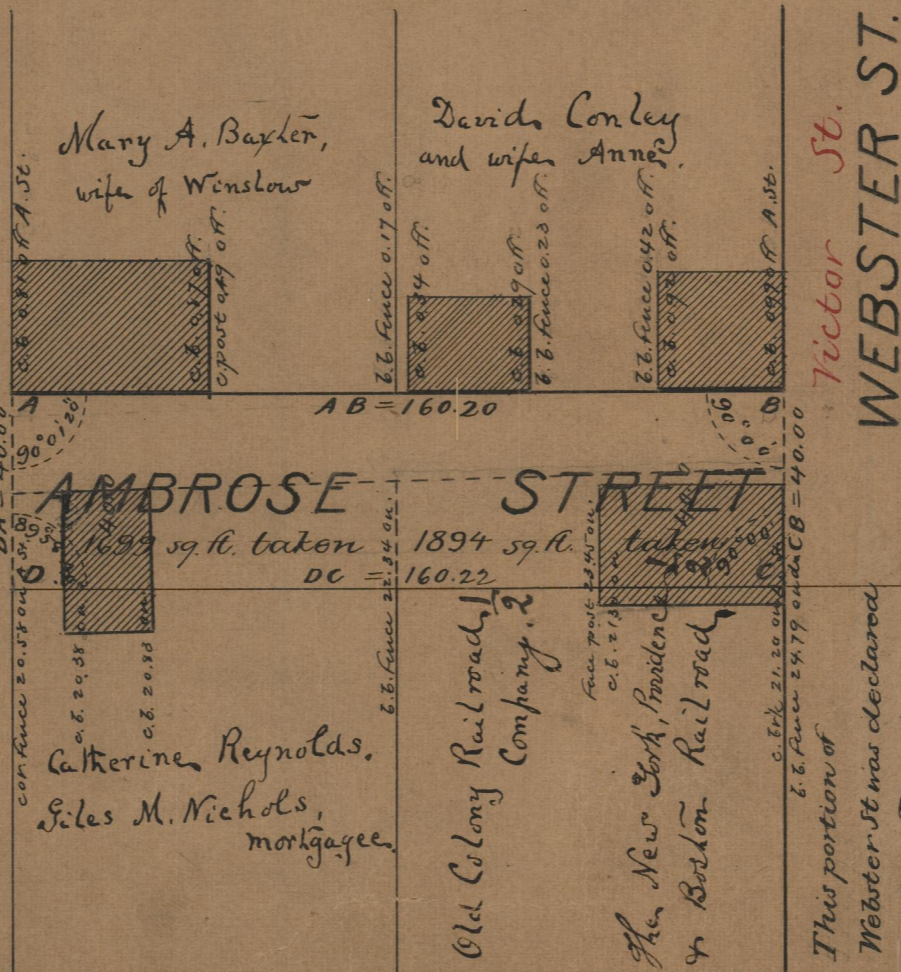 Mary A. Baxter,
wife of Winslow
David Conley
and wife Anne
c.b. 0.81 off A. St.
c. post 0.49 off.
b.b. fence 0.17 off.
c.b. 0.34 off.
b.b. fence 0.23 off.
b.b. fence 0.42 off.
Victor St.
WEBSTER ST.
A
AB = 160.20
B
90° 0' 120"
DA = 40.00
AMBROSE STREET
CB = 40.00
1699 sq. ft. taken
1894 sq. ft. taken
D
DC = 160.22
C
90° 00' 00"
con fence 20.58 on
c.b. 20.38 on
c.b. 20.83 on
b.b. fence 22.34 on.
Face post 23.45 on.
c.b. 21.20 on
b.b. fence 24.79 on
Catherine Reynolds.
Giles M. Nichols,
mortgagee.
Old Colony Railroad
Company. 1/2
The New York, Providence
& Boston Railroad,
This portion of
Webster St was declared